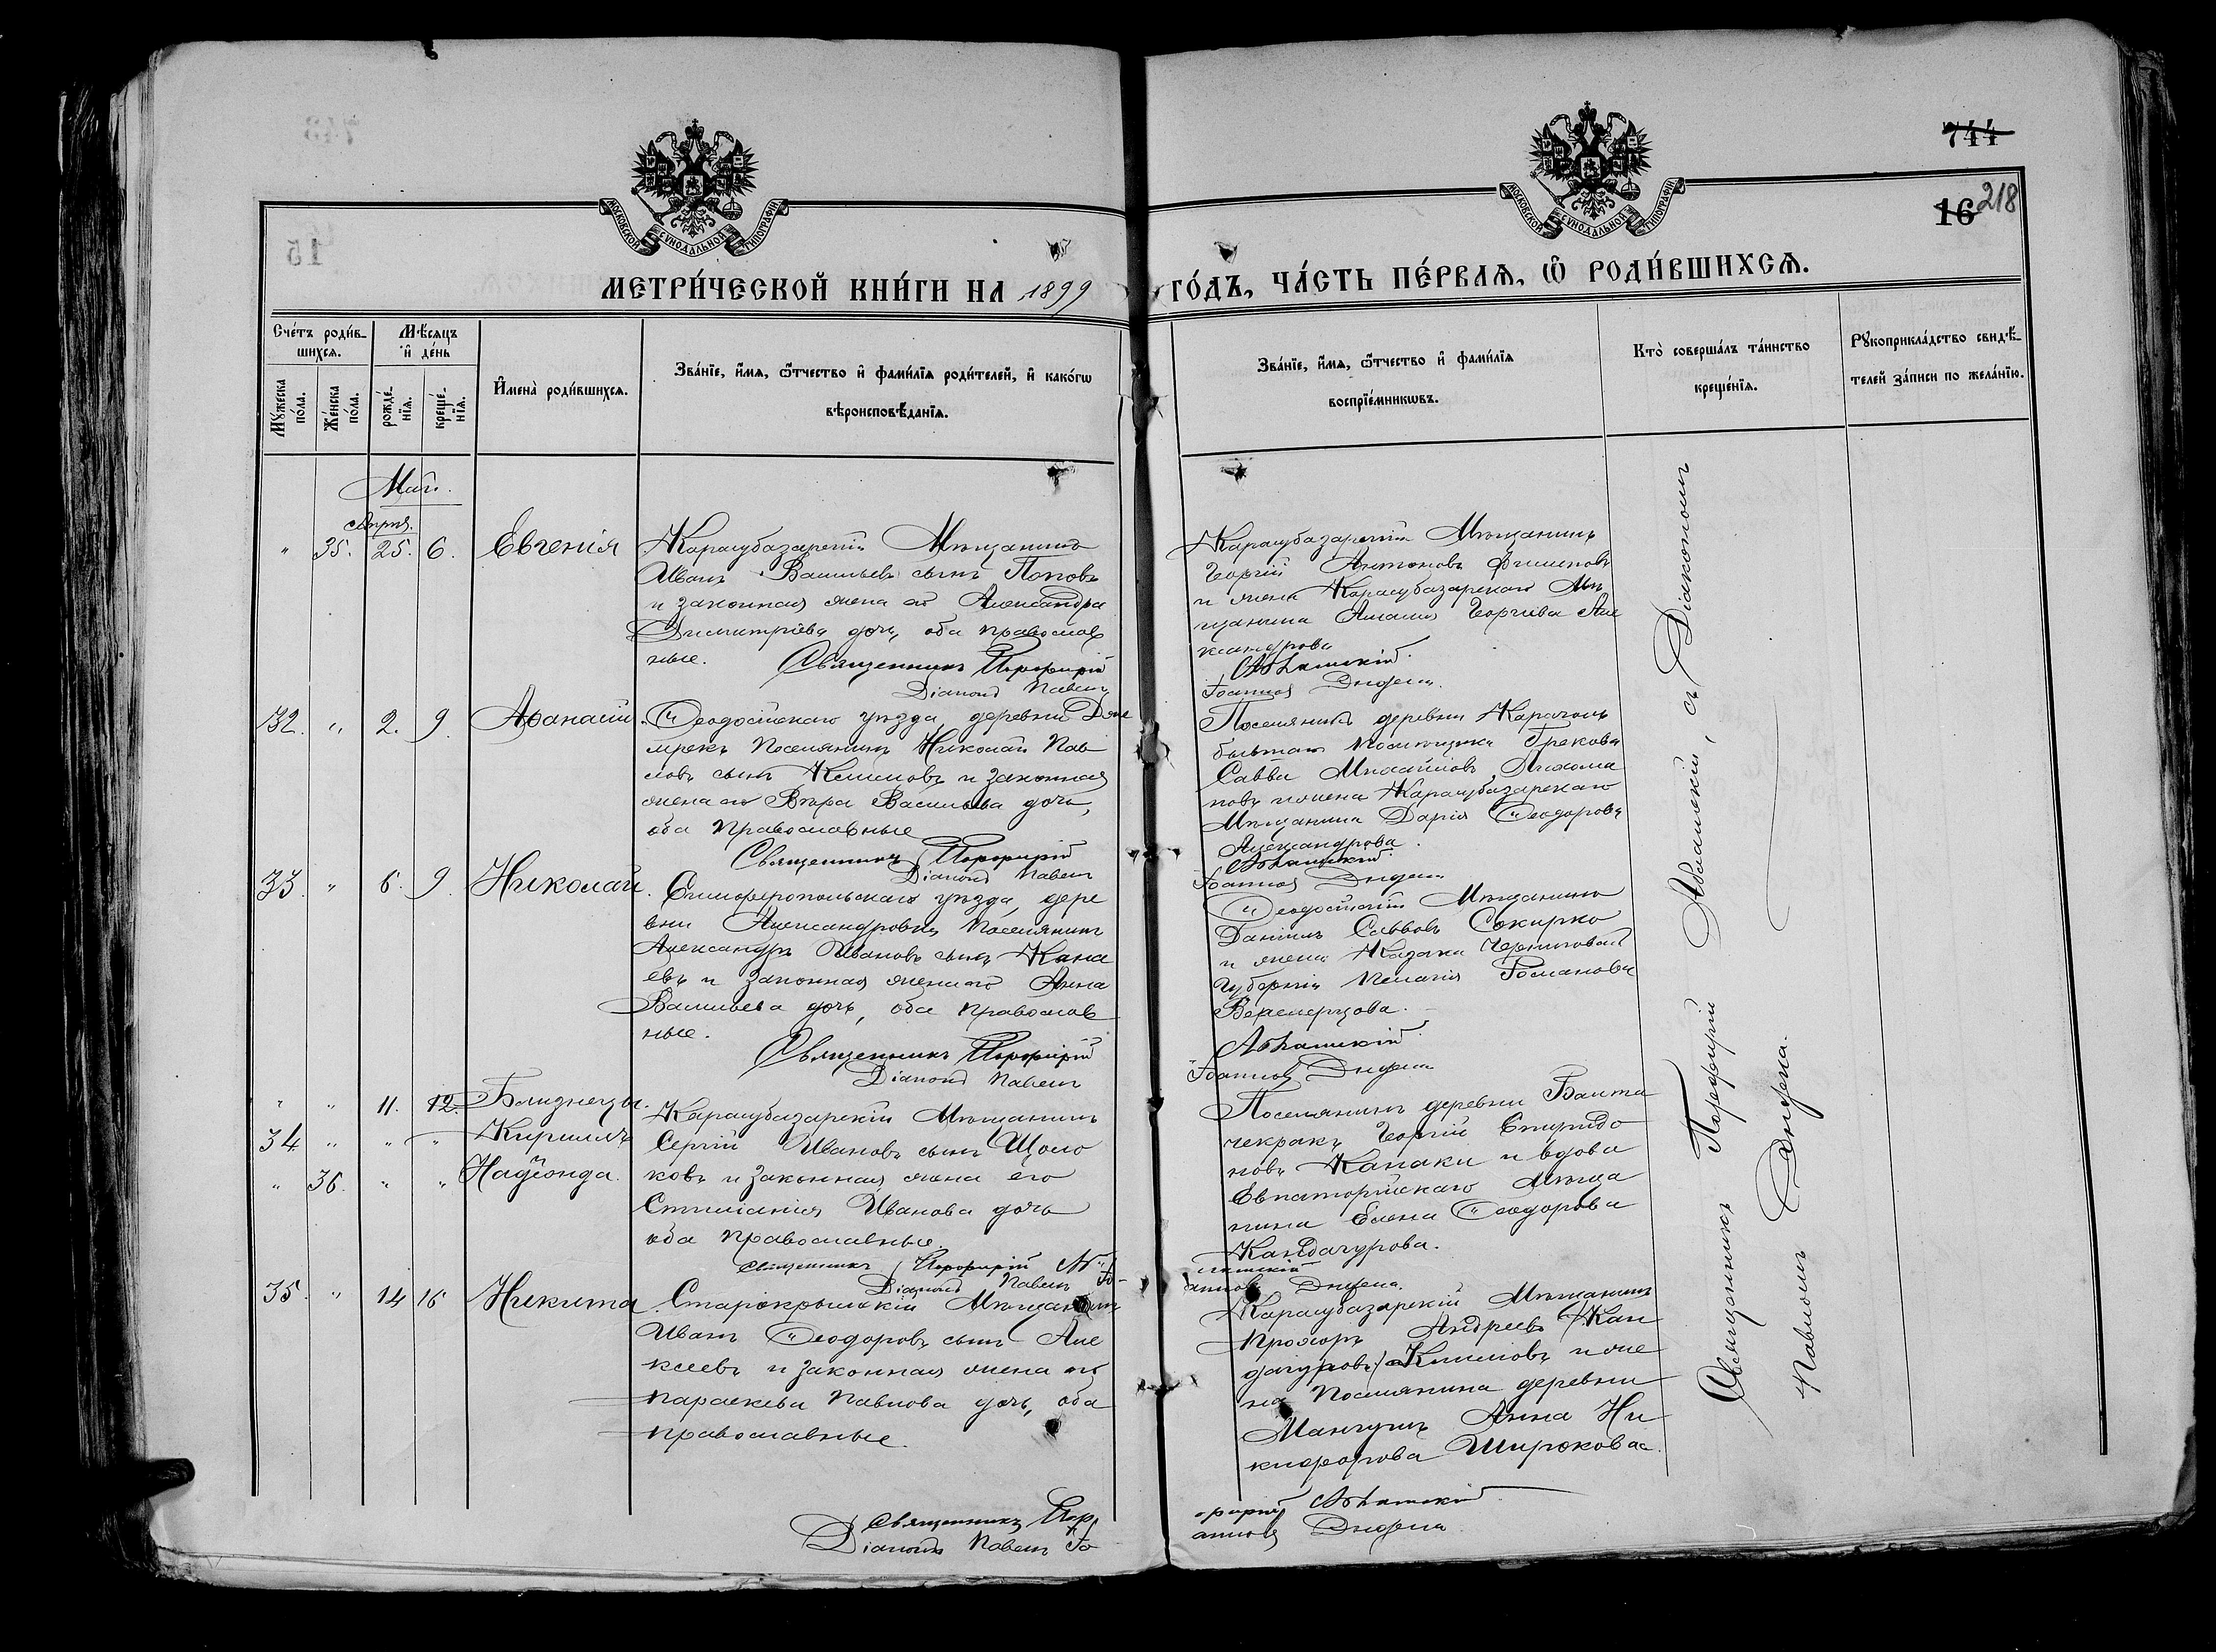 744
16
218
МОСКОВСКОЙ СѴНОДАЛЬНОЙ ТИПОГРАФІИ
МОСКОВСКОЙ СѴНОДАЛЬНОЙ ТИПОГРАФІИ
МЕТРИ́ЧЕСКОЙ КНИ́ГИ НА 1899 ГО́ДЪ, ЧА́СТЬ ПЕ́РВАѦ, Ѽ РОДИ́ВШИХСѦ.
Сче́тъ роди́в-
шихсѧ.
Мѣ́сѧцъ
и҆ де́нь
Мꙋ́жеска
по́ла.
Же́нска
по́ла.
рожде́-
нїѧ.
креще́-
нїѧ.
И҆мена̀ роди́вшихсѧ.
Зва́нїе, и҆́мѧ, ѻ҆́тчество и҆ фами́лїѧ роди́телей, и҆ како́гѡ
вѣроисповѣ́данїѧ.
Зва́нїе, и҆́мѧ, ѻ҆́тчество и҆ фами́лїѧ
воспрїе́мникѡвъ.
Кто̀ соверша́лъ та́инство
креще́нїѧ.
Рꙋкоприкла́дство свидѣ́-
телей за́писи по жела́нїю.
Май.
Апрѣл.
" 35. 25. 6. Евгенія
Карасубазарскій Мѣщанинъ
Иванъ Васильевъ сынъ Поповъ
и законная жена его Александра
Димитріева дочь, оба православ
ные. Священникъ Порфирій
Діаконъ Павелъ
Карасубазарскій Мѣщанинъ
Георгій Антоновъ
и жена Карасубазарскаго Мѣ
щанина Георгіева Але
ксандрова
Абламскій.
Іоанновъ Диджена.
32. " 2. 9. Аѳанасій
Ѳеодосійскаго уѣзда, деревни
поселянинъ Николай Пав
ловъ сынъ Климовъ и законная
жена его Вѣра Васильева дочь,
оба православные
Священникъ Порфирій
Діаконъ Павелъ
Поселянинъ деревни Карагозъ
бывшаго помѣщика Грекова
Савва Михайловъ
и жена Карасубазарскаго
Мѣщанина Дарія Ѳеодорова
Александрова.
Абламскій.
Іоанновъ Диджена
33 " 6. 9. Николай.
Симферопольскаго уѣзда, дере
вни Александровки поселянинъ
Александръ Ивановъ сынъ Кана
евъ и законная жена его Анна
Васильева дочь, оба православ
ные.
Священникъ Порфирій
Діаконъ Павелъ
Ѳеодосійскій Мѣщанинъ
Даніилъ Саввовъ Сокирко
и жена Казака Черниговской
Губерніи Пелагія Романова
Абламскій.
Іоанновъ Диджена
" " 11. 12. Близнецы.
34 " " " Кириллъ
" 36. " " Надежда.
Карасубазарскій Мѣщанинъ
Сергій Ивановъ сынъ Щоло
ковъ и законная жена его
Стилианія Иванова дочь
оба православные.
Священникъ Порфирій Аб-
Діаконъ Павелъ Іо-
Поселянинъ деревни
Георгій Спиридо
новъ Капаки и вдова
Евпаторійскаго Мѣща
нина Елена Ѳеодорова
Кандачурова.
ламскій
анновъ Диджена.
35. " 14 16 Никита
Старокрымскій Мѣщанинъ
Иванъ Ѳеодоровъ сынъ Але
ксеевъ и законная жена его
Параскева Павлова дочь, оба
православные.
Карасубазарскій Мѣщанинъ
Прохоръ Андреевъ (Кан
дачуровъ) Климовъ и же
на поселянина деревни
Мангушъ Анна Ни
кифорова Широкова.
Священникъ Пор-
Діаконъ Павелъ Іо-
фирій Абламскій
анновъ Диджена
Священникъ Порфирій Абламскій, съ Діакономъ
Павломъ Диджена.